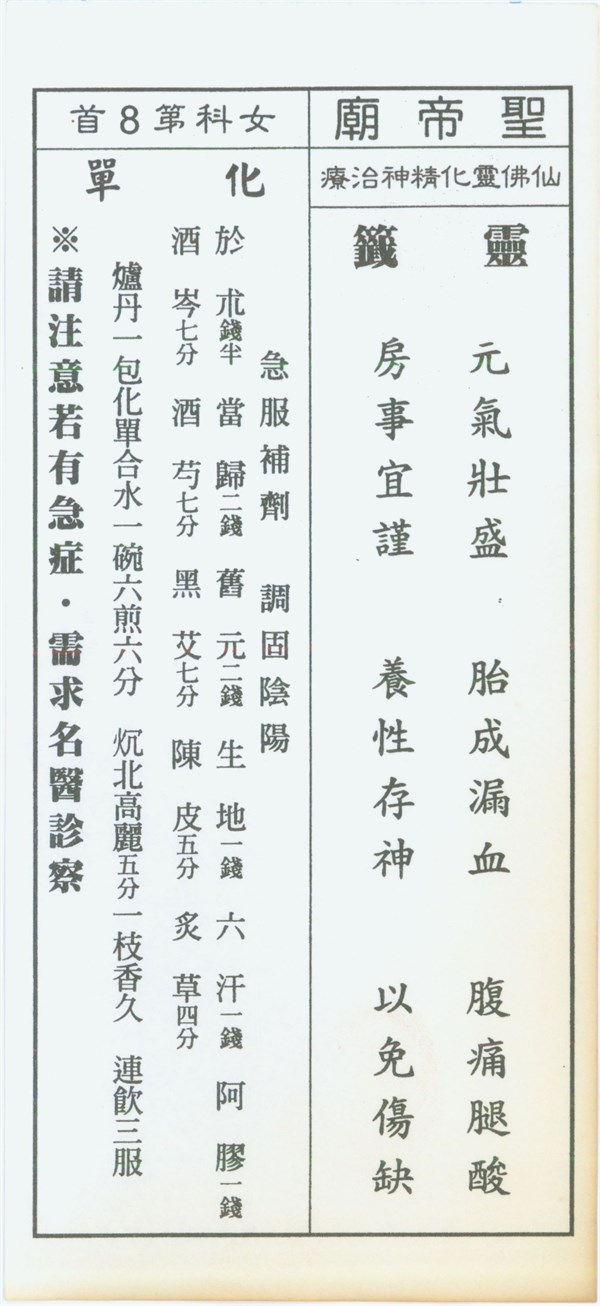 聖帝廟
仙佛靈化精神治療
靈籤
元氣壯盛 胎成漏血 腹痛腿酸
房事宜謹 養性存神 以免傷缺
女科第8首
化單
急服補劑 調固陰陽
於朮錢半 當歸二錢 舊元二錢 生地一錢 六汗一錢 阿膠一錢
酒岑七分 酒芍七分 黑艾七分 陳皮五分 炙草四分
爐丹一包化單合水一碗六煎六分 北高麗五分一枝香久 連飲三服
※請注意若有急症・需求名醫診察